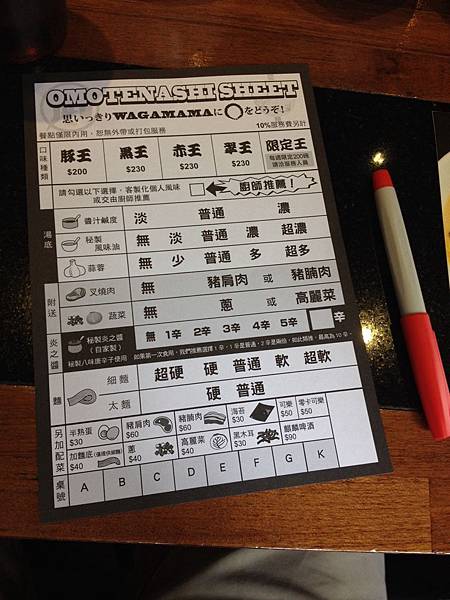 OMOTENASHI SHEET
思いっきりWAGAMAMAに○をどうぞ！
餐點僅限內用，恕無外帶或打包服務 10%服務費另計
口味種類 豚王 $200 黑王 $230 赤王 $230 翠王 $230 限定王 每週限定200碗 請洽服務人員
請勾選以下選擇，客製化個人風味 或交由廚師推薦 廚師推薦！
湯底
醬汁鹹度 淡 普通 濃
秘製風味油 無 淡 普通 濃 超濃
蒜蓉 無 少 普通 多 超多
附送
叉燒肉 無 豬肩肉 或 豬腩肉
蔬菜 無 蔥 或 高麗菜
炎之醬
秘製炎之醬（自家製） 無 1辛 2辛 3辛 4辛 5辛 辛
秘製八味唐辛子使用 如果第一次食用，我們推薦選擇1辛，1辛是普通，2辛是兩倍，如此類推，最高為10辛。
麵
細麵 超硬 硬 普通 軟 超軟
太麵 硬 普通
另加配菜
半熟蛋 $30 豬肩肉 $60 豬腩肉 $60 海苔 $30 可樂 $50 零卡可樂 $50
加麵底 $40 蔥 $40 高麗菜 $40 黑木耳 $30 麒麟啤酒 $90
桌號 A B C D E F G K